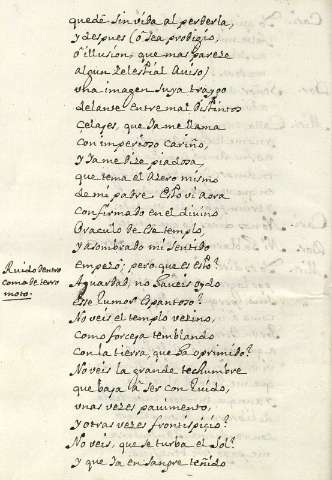 quedè sin vida al perderla,
y despues (ò sea prodigio,
ò illusion, que mas pareze
algun zelestial auiso)
vna imagen suya traygo
delante entre mal distintos
çelages, que ya me llama
con imperioso cariño,
y ya me dize piadosa,
que tema el azero mismo
de mi padre. Esto vi aora
confirmado en el diuino
Oraculo de este templo,
y asombrado mi sentido
Empezò; pero que es esto?
Ruido dentro
como de terre
moto.
Aguardad, no haueis oydo
Ese rumor espantoso?
No veis el templo vezino,
como forceja temblando
con la tierra, que ha oprimido?
No veis la grande techumbre
que baja à ser con ruido,
vnas vezes pauimento,
y otras vezes frontispiçio?
No veis, que se turba el sol?
y que ya en sangre teñido